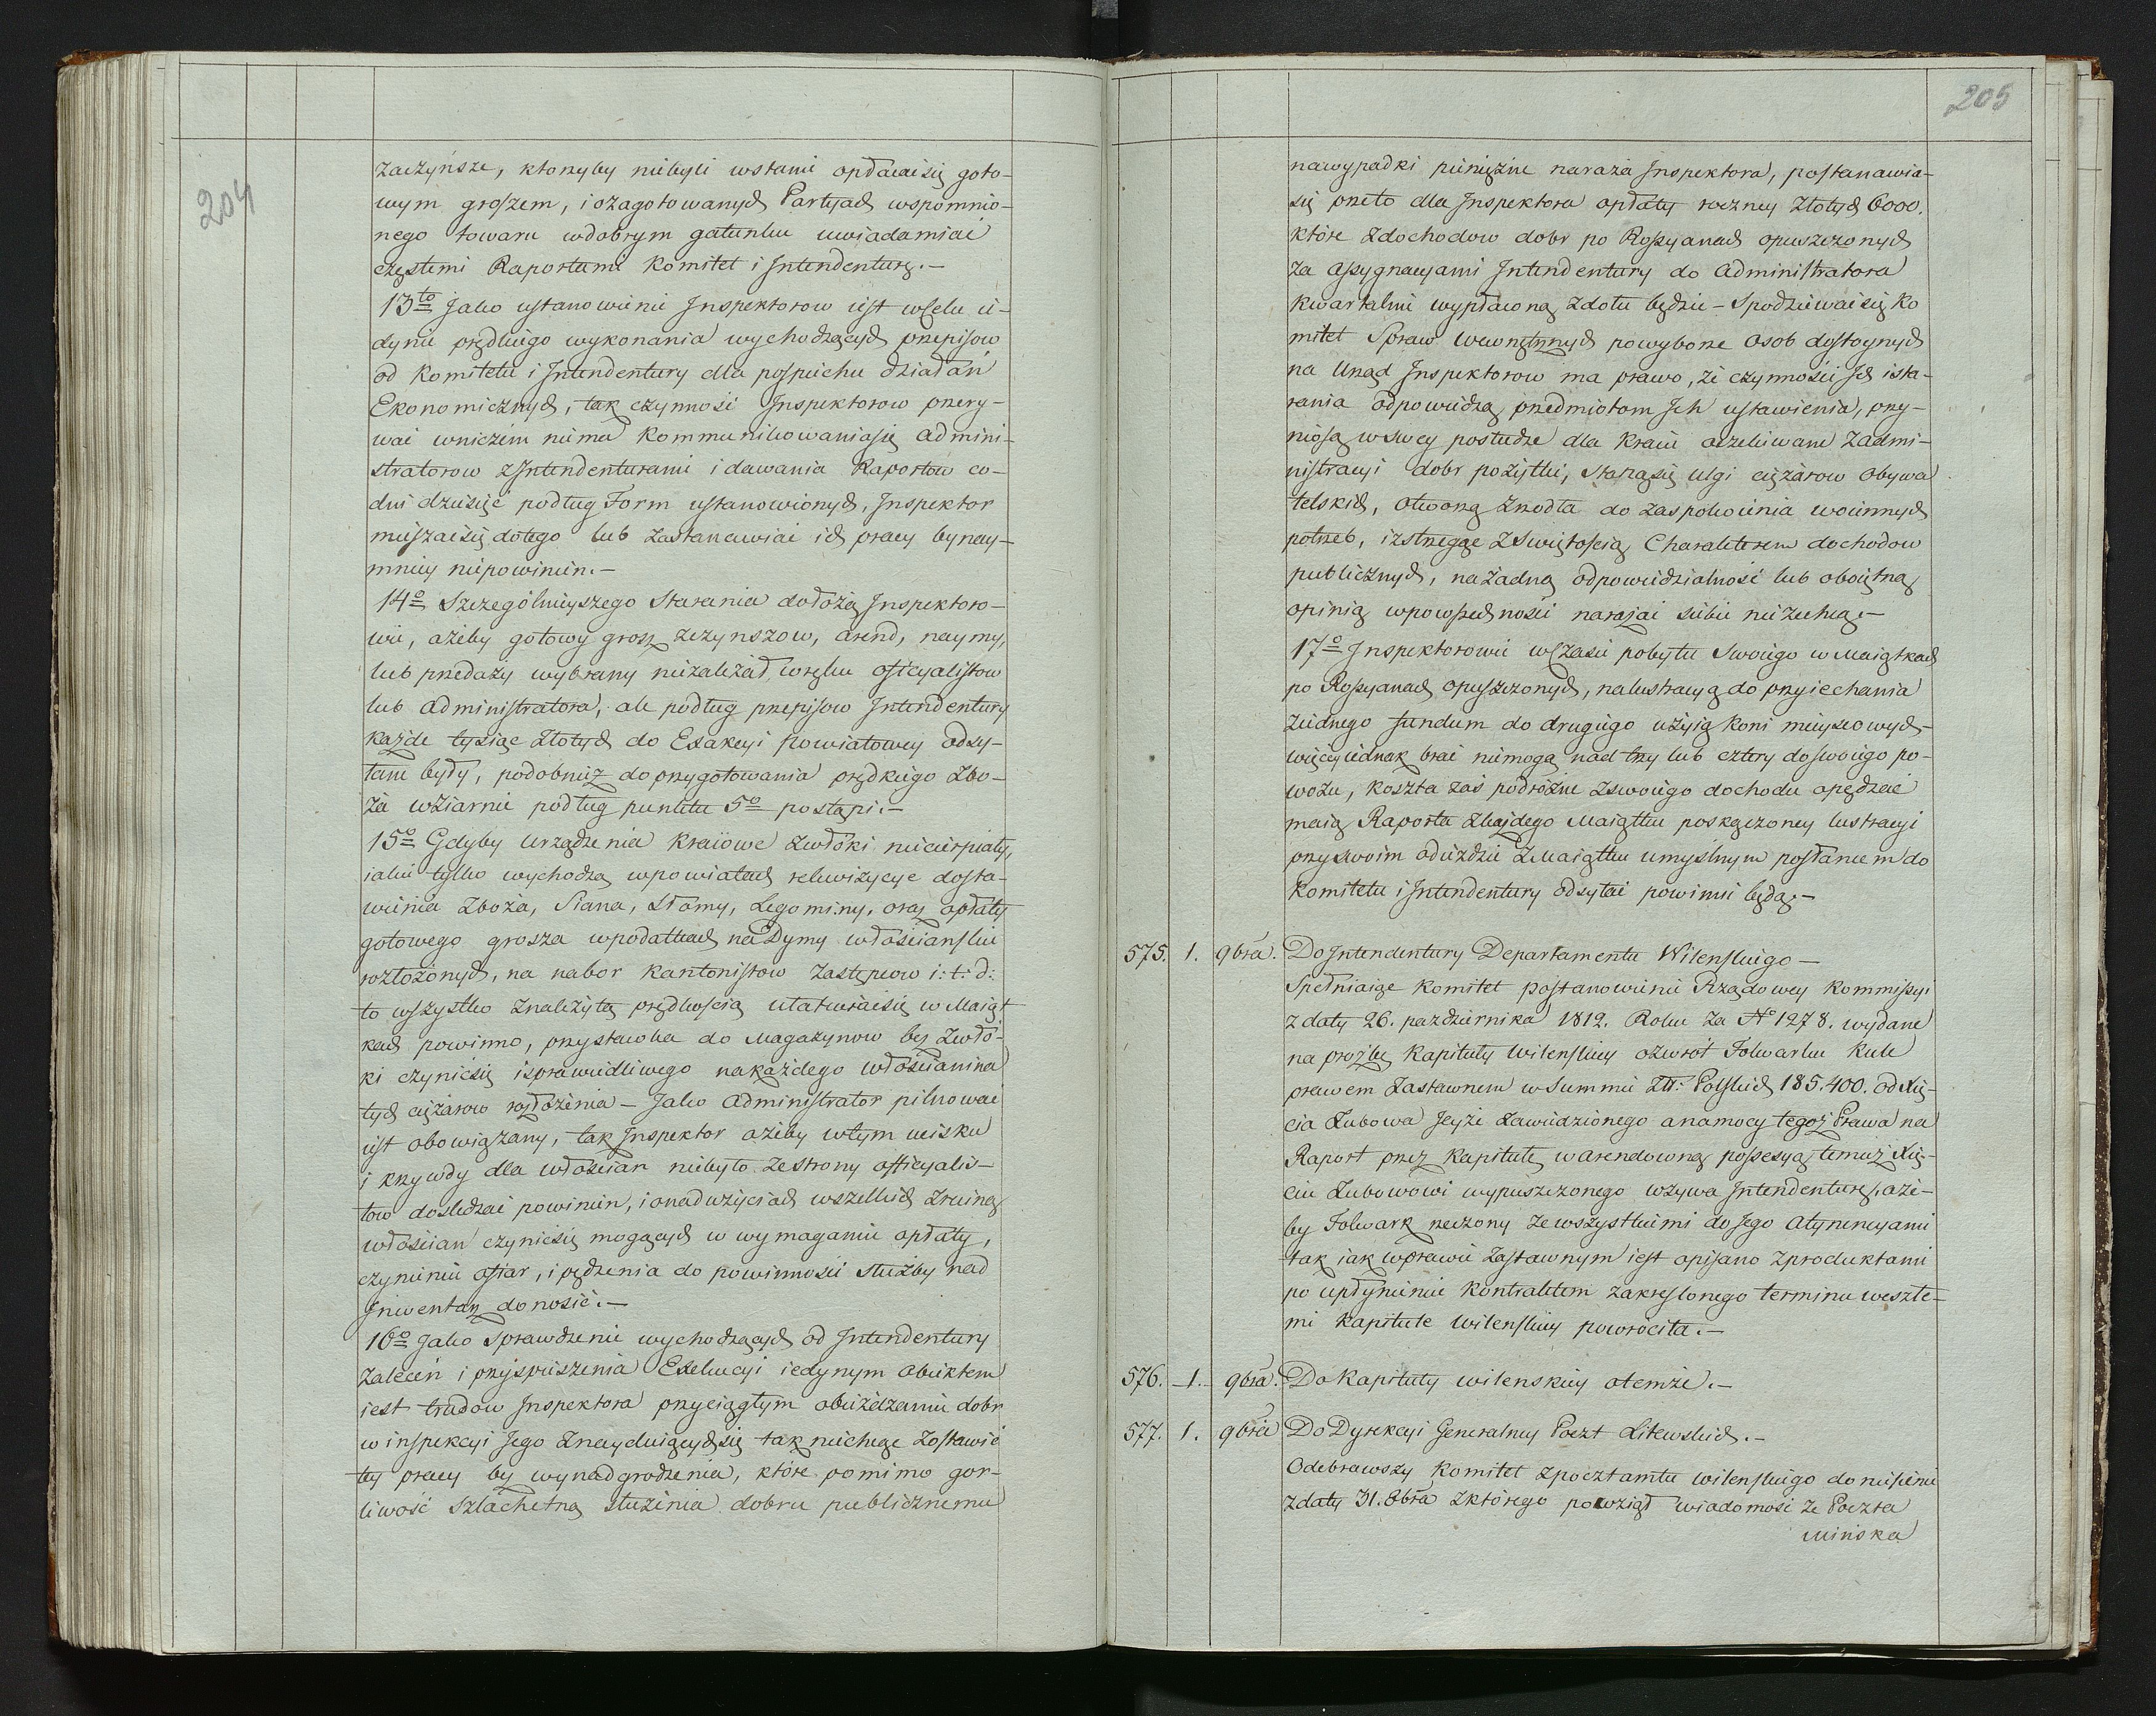 204
zaczyńsze, ktorzyby niebyli wstanie opłacaćsię goto-
wym groszem, i ozagotowanych Partyach wspomnio-
nego towaru wdobrym gatunku uwiadamiać
częstemi Raportami Komitet i Intendenturę.-
13to Jako ustanowienie Inspektorow iest wCelu ie-
dynie prędkiego wykonania wychodzących przepisow
od Komitetu i Intendentury dla pospiechu działań
Ekonomicznych, tak czynność Inspektorow przery-
wać wniczém niema kommunikowaniasię Admini-
stratorow zIntendenturami i dawania Raportow co-
dni dziesięć podług Form ustanowionych, Inspektor
mięszaćsię dotego lub zastanawiać ich pracy bynay-
mniey niepowinien.-
14o Szczególnieyszego starania dołożą Inspektoro-
wie, ażeby gotowy grosz zczynszow, arend, naymy,
lub przedaży wybrany niezależał wręku officyalistow
lub Administratora, ale podług przepisow Intendentury
każde tysiąc złotych do Exakcyi powiatowey odsy-
łane były, podobnież do przygotowania prędkiego zbo-
ża wziarnie podług punktu 5o postąpi.-
15o Gdyby urządzenia kraiowe zwłoki niecierpiały,
iakie tylko wychodzą wpowiatach rekwizycye dosta-
wienia zboża, Siana, Słomy, Legominy, oraz opłaty
gotowego grosza wpodatkach na Dymy włościańskie
rozłożonych, na nabor kantonistow zastępcow i: t: d:
to wszystko znależytą prędkością ułatwiaćsię w Maiąt
kach powinno, przystawka do Magazynow bez zwło-
ki czynićsię isprawiedliwego nakażdego włościanina
tych ciężarow rozłożenia - Jako Administrator pilnować
iest obowiązany, tak Inspektor ażeby wtym ucisku
i krzywdy dla włościan niebyło ze strony officyalis-
tow dośledzać powinien, i onadużyciach wszelkich zruiną
włościan czynićsię mogących w wymaganiu opłaty,
czynieniu ofiar, i pędzenia do powinności służby nad
Inwentarz donosić.-
16o Jako Sprawdzenie wychodzących od Intendentury
zaleceń i przyspieszenia Exekucyi iedynym obiektem
iest trudow Inspektora przyciągłym obieżdżaniu dobr
w inspekcyi Jego znayduiącychsię tak niechcąc zostawić
tey pracy bez wynadgrodzenia, które pomimo gor-
liwość szlachetną służenia dobru publicznemu
205
nawypadki pieniężne naraża Inspektora, postanawia-
się przeto dla Inspektora opłaty roczney złotych 6000.
które zdochodow dobr po Rossyanach opuszczonych
za Assygnacyami Intendentury do Administratora
kwartalnie wypłaconą zdołu będzie - Spodziewaćsię Ko
mitet Spraw wewnętrznych powyborze Osob dostoynych
na Urząd Inspektorow ma prawo, że czynności Ich i sta-
rania odpowiedzą przedmiotom Ich ustawienia, przy-
niosą wswey posłudze dla kraiu oczekiwane zadmi-
nistracyi dobr pożytki, starasię ulgi ciężarow Obywa
telskich, otworzą źrzodła do zaspokoienia woiennych
potrzeb, i zstrzegąc zświętością Charakterem dochodow
publicznych, nażadną odpowiedzialność lub oboiętną
opinią wpowszechności narażać siebie niezechcą.-
17o Inspektorowie wCzasie pobytu Swoiego w Maiątkach
po Rossyanach opuszczonych, nalustracyą do przyiechania
ziednego fundum do drugiego użyią koni mieyscowych-
więcey iednak brać niemogą nad trzy lub cztery doswoiego po-
wozu, koszta zaś podróżne zswoiego dochodu opędzać
maią Raporta zkażdego Maiątku poskączoney lustracyi
przyswoim odieździe zMaiątku umyślnym posłańcem do
Komitetu i Intendentury odsyłać powinni będą.-
575. 1. 9bra. Do Intendentury Departamentu Wilenskiego -
Spełniaiąc Komitet postanowienie Rządowey Kommissyi
z daty 26. pazdziernika 1812. Roku za No 1278. wydane
na prozbę Kapituły Wilenskiey ozwrot Folwarku Kule
prawem Zastawnem w Summie Złł: Polskich 185.400. od Xię-
cia Zubowa Jeyże zawiedzionego anamocy tegoż Prawa na
Raport przez Kapitułę warendowną possesyą temuż Xię-
ciu Zubowowi wypuszczonego wzywa Intendenturę, aże-
by Folwark rzeczony ze wszystkiemi do Jego Atynencyami
tak iak wprawie zastawnym iest opisano zproduktami
po upłynieniu kontraktem zakreslonego terminu weszłe-
mi Kapitule wilenskiey powrociła.-
576. -1.- 9bra. Do Kapituły wilenskiey otemże.-
577. 1. 9bra Do Dyrekcyi Generalney Poczt Litewskich.-
Odebrawszy Komitet zpocztamtu wilenskiego doniesienie
zdaty 31. 8bra zktórego powziął wiadomość że Poczta
mińska